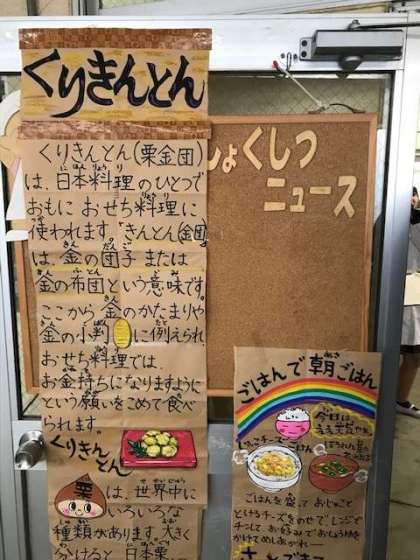 くりきんとん
くりきんとん(栗金団)
は、日本料理のひとつで
おもにおせち料理に
使われます。きんとん(金団)
は、金の団子または
金の布団という意味です。
ここから金のかたまりや
金の小判に例えられ
おせち料理では、
お金持ちになりますように
という願いをこめて食べ
られます。
くりきんとん
栗
は、世界中に
いろいろな
種類があります。大きく
分けると、日本栗
しょくしつ
ニュース
ごはんで朝ごはん
ごはんを盛っておじゃこと
とけるチーズをのせてレンジで
チンして お好みでおしょうゆを
かけてめしあがれー